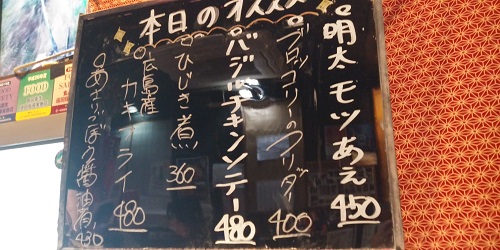 本日のオススメ
明太モツあえ 450
ブロッコリーのフリッター 400
バジルチキンソテー 480
ひじき煮 360
広島産カキフライ 480